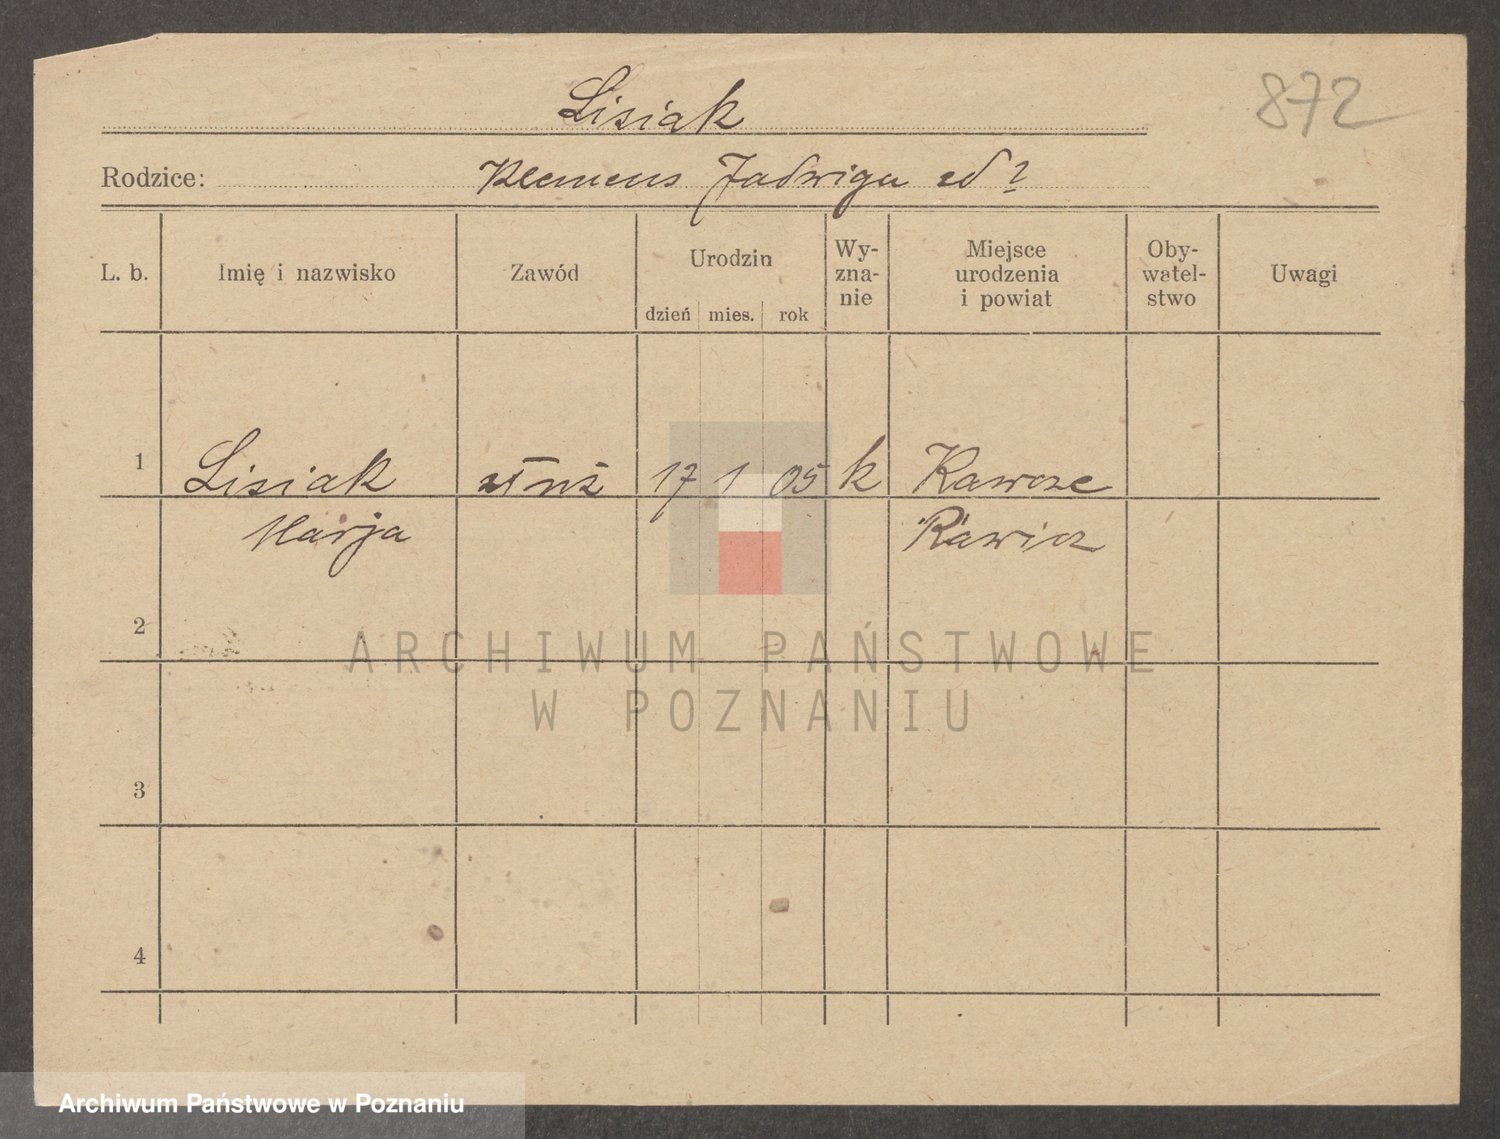 872
Lisiak
Rodzice: Klemens Jadwiga zd?
L. b. Imię i nazwisko Zawód Urodzin dzień mies. rok Wy-zna-nie Miejsce urodzenia i powiat Oby-watel-stwo Uwagi
1 Lisiak 17 1 05 k Kawcze
Marja Rawicz
2
3
4
ARCHIWUM PAŃSTWOWE
W POZNANIU
Archiwum Państwowe w Poznaniu